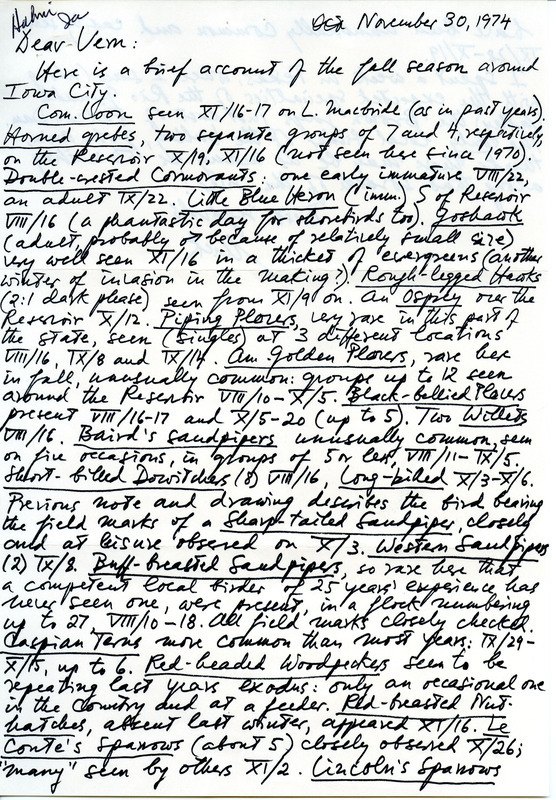 Halmi
Oct November 30, 1974
Dear Vern:
Here is a brief account of the fall season around
Iowa City.
Com. Loon seen XI/16-17 on L. Macbride (as in past years).
Horned grebes, two separate groups of 7 and 4, respectively,
on the Reservoir X/19, XI/16 (not seen here since 1970).
Double-crested Cormorants: one early immature VIII/22,
an adult IX/22. Little Blue Heron (imm.) S of Reservoir
VIII/16 (a phantastic day for shorebirds too). Goshawk
(adult, probably ♂ because of relatively small size)
very well seen XI/16 in a thicket of evergreens (another
winter of invasion in the making?). Rough-legged Hawks
(2:1 dark phase) seen from XI/9 on. An Osprey over the
Reservoir X/12. Piping Plovers, very rare in this part of
the state, seen (singles) at 3 different locations
VIII/16, IX/8 and IX/14. Am. Golden Plovers, rare here
in fall, unusually common: groups up to 12 seen
around the Reservoir VIII/10-X/5. Black-bellied Plovers
present VIII/16-17 and X/5-20 (up to 5). Two Willets
VIII/16. Baird's sandpipers unusually common, seen
on five occasions, in groups of 5 or less, VIII/11-IX/5.
Short-billed Dowitchers (8) VIII/16, Long-billed X/3-X/6.
Previous note and drawing describes the bird bearing
the field marks of a Sharp-tailed Sandpiper, closely
and at leisure observed on X/3. Western Sandpipers
(2) IX/8. Buff-breasted Sandpipers, so rare here that
a competent local birder of 25 years' experience has
never seen one, were present, in a flock numbering
up to 27, VIII/10-18. All field marks closely checked.
Caspian Terns more common than most years: IX/29-
X/15, up to 6. Red-headed Woodpeckers seem to be
repeating last years exodus: only an occasional one
in the country and at a feeder. Red-breasted Nut-
hatches, absent last winter, appeared XI/16. Le
Conte's Sparrows (about 5) closely observed X/26;
"many" seen by others XI/2. Lincoln's Sparrows